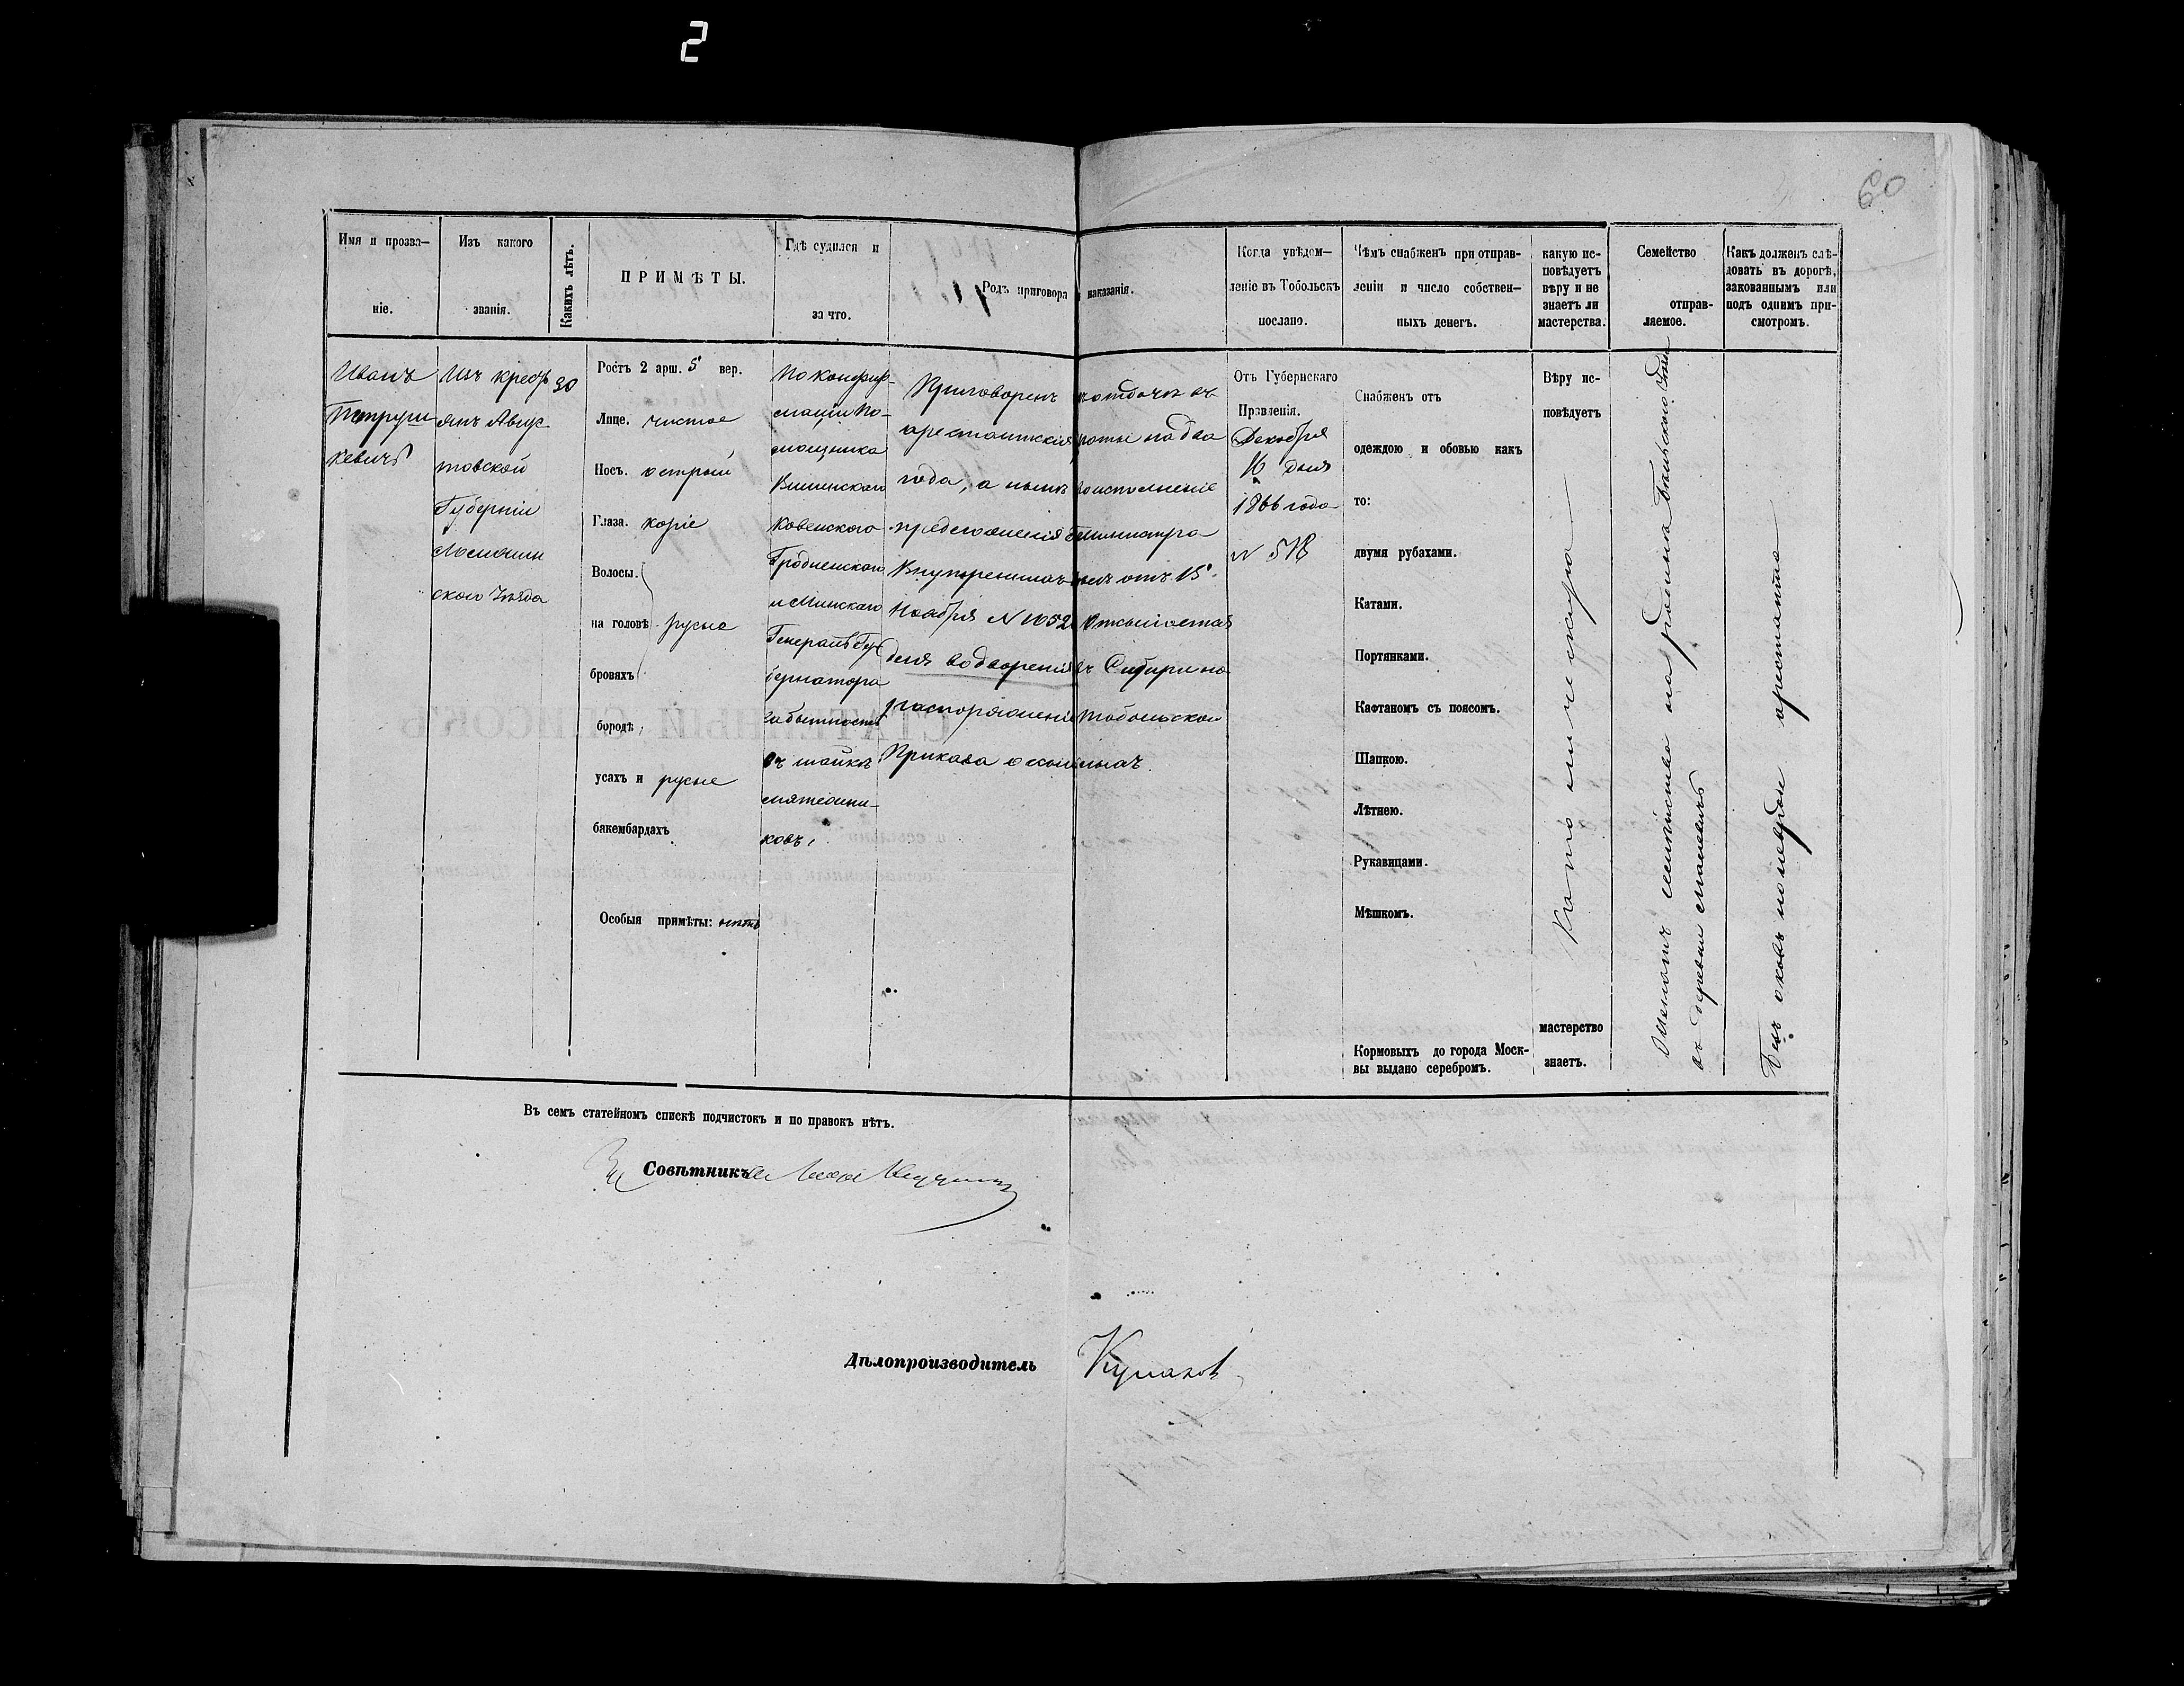 2
60
Имя и прозва-
ніе.
Изъ какого
званія.
Какихъ лѣтъ.
ПРИМѢТЫ.
Гдѣ судился и
за что.
Родъ приговора и наказанія.
Когда увѣдом-
леніе въ Тобольскъ
послано.
Чѣмъ снабженъ при отправ-
леніи и число собствен-
ныхъ денегъ.
какую ис-
повѣдуетъ
вѣру и не
знаетъ ли
мастерства.
Семейство
отправ-
ляемое.
Какъ должень слѣ-
довать въ дорогѣ,
закованнымъ или
подъ однимъ при-
смотромъ.
Иванъ
Петруш
кевичъ
Изъ крестъ
янъ Авгус
товской
Губерніи
Ломжин
скаго Уѣзда
30
Ростъ 2 арш. 5 вер.
Лице. чистое
Носъ. острый
Глаза. каріе
Волосы.
на головѣ русые
бровяхъ
бородѣ
усахъ и русые
бакембардахъ
Особыя примѣты: нѣтъ
По конфир-
маціи По-
мощника
Виленскаго
Ковенскаго
Гродненскаго
и Минскаго
Генералъ Гу
бернатора
за бытность
въ шайкѣ
мятежни-
ковъ,
Приговоренъ къ отдачѣ въ
арестантскія роты на два
года, а нынѣ во исполненіе
предложенія Г. Министра
Внутреннихъ дѣлъ отъ 15
Ноября N 10521 отсылается
для водворенія въ Сибири по
распоряженію Тобольскаго
Приказа о ссыльныхъ.
Отъ Губернскаго
Правленія.
Декабря
16 дня
1866 года
N 518
Снабженъ отъ
одеждою и обовью какъ
то:
двумя рубахами.
Катами.
Портянками.
Кафтаномъ съ поясомъ.
Шапкою.
Лѣтнею.
Рукавицами.
Мѣшкомъ.
Кормовыхъ до города Моск-
вы выдано серебромъ.
Вѣру ис-
повѣдуетъ
Католическую
мастерство
знаетъ.
на родинѣ
въ деревнѣ
Безъ оковъ по мѣрѣ арестанта
Въ семъ статейномъ спискѣ подчистокъ и по правокъ нѣтъ.
За Совѣтникъ
Дѣлопроизводитель